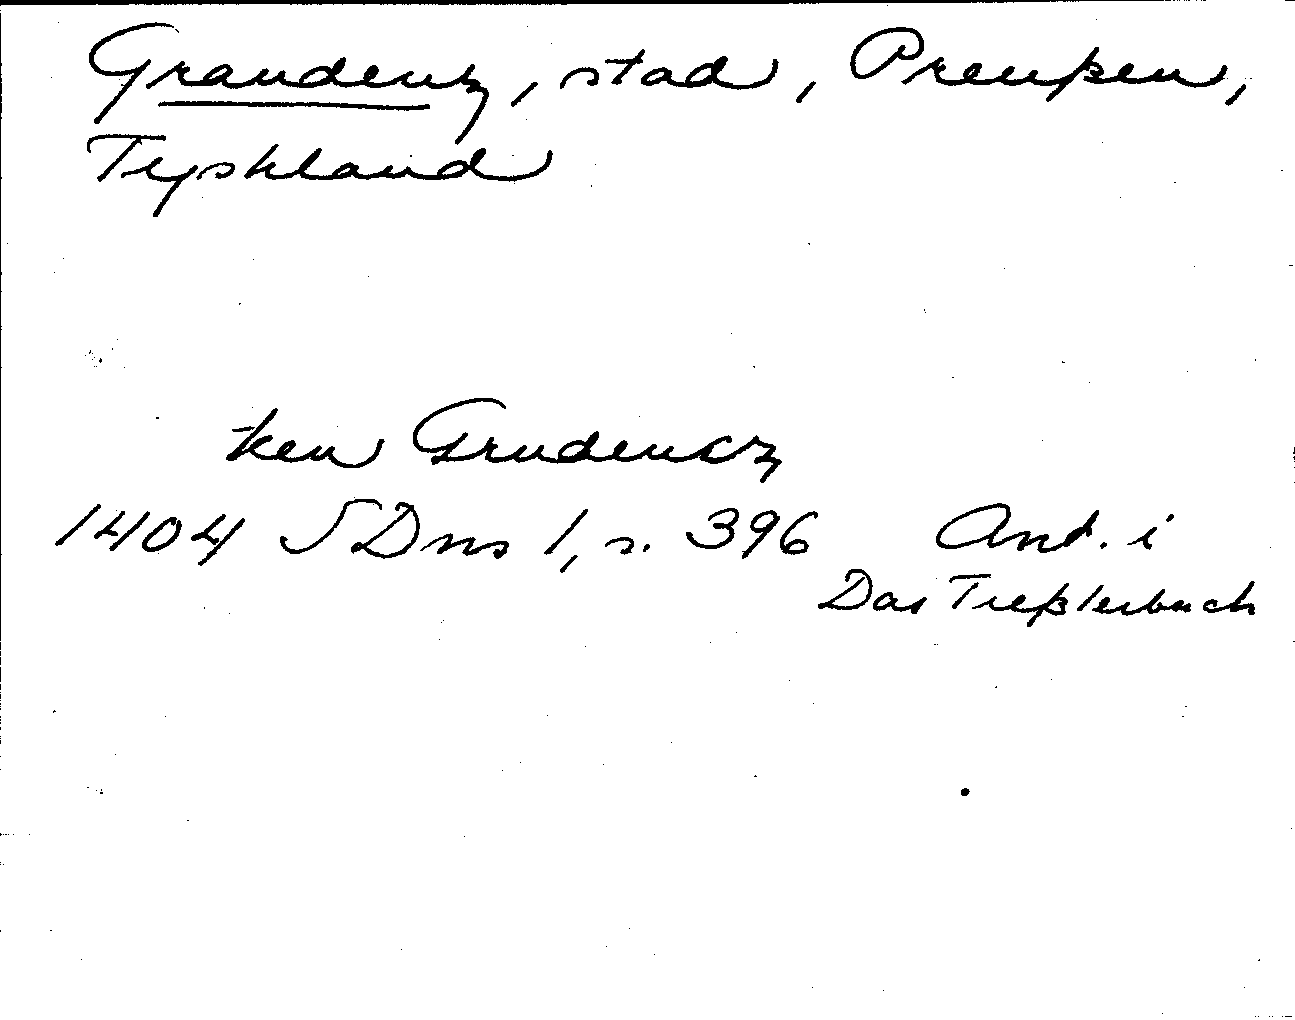 Graudenz, stad, Preußen,
Tyskland
ken Grudencz
1404 SDns 1, s. 396 Ant. i
Das Treßlerbuch